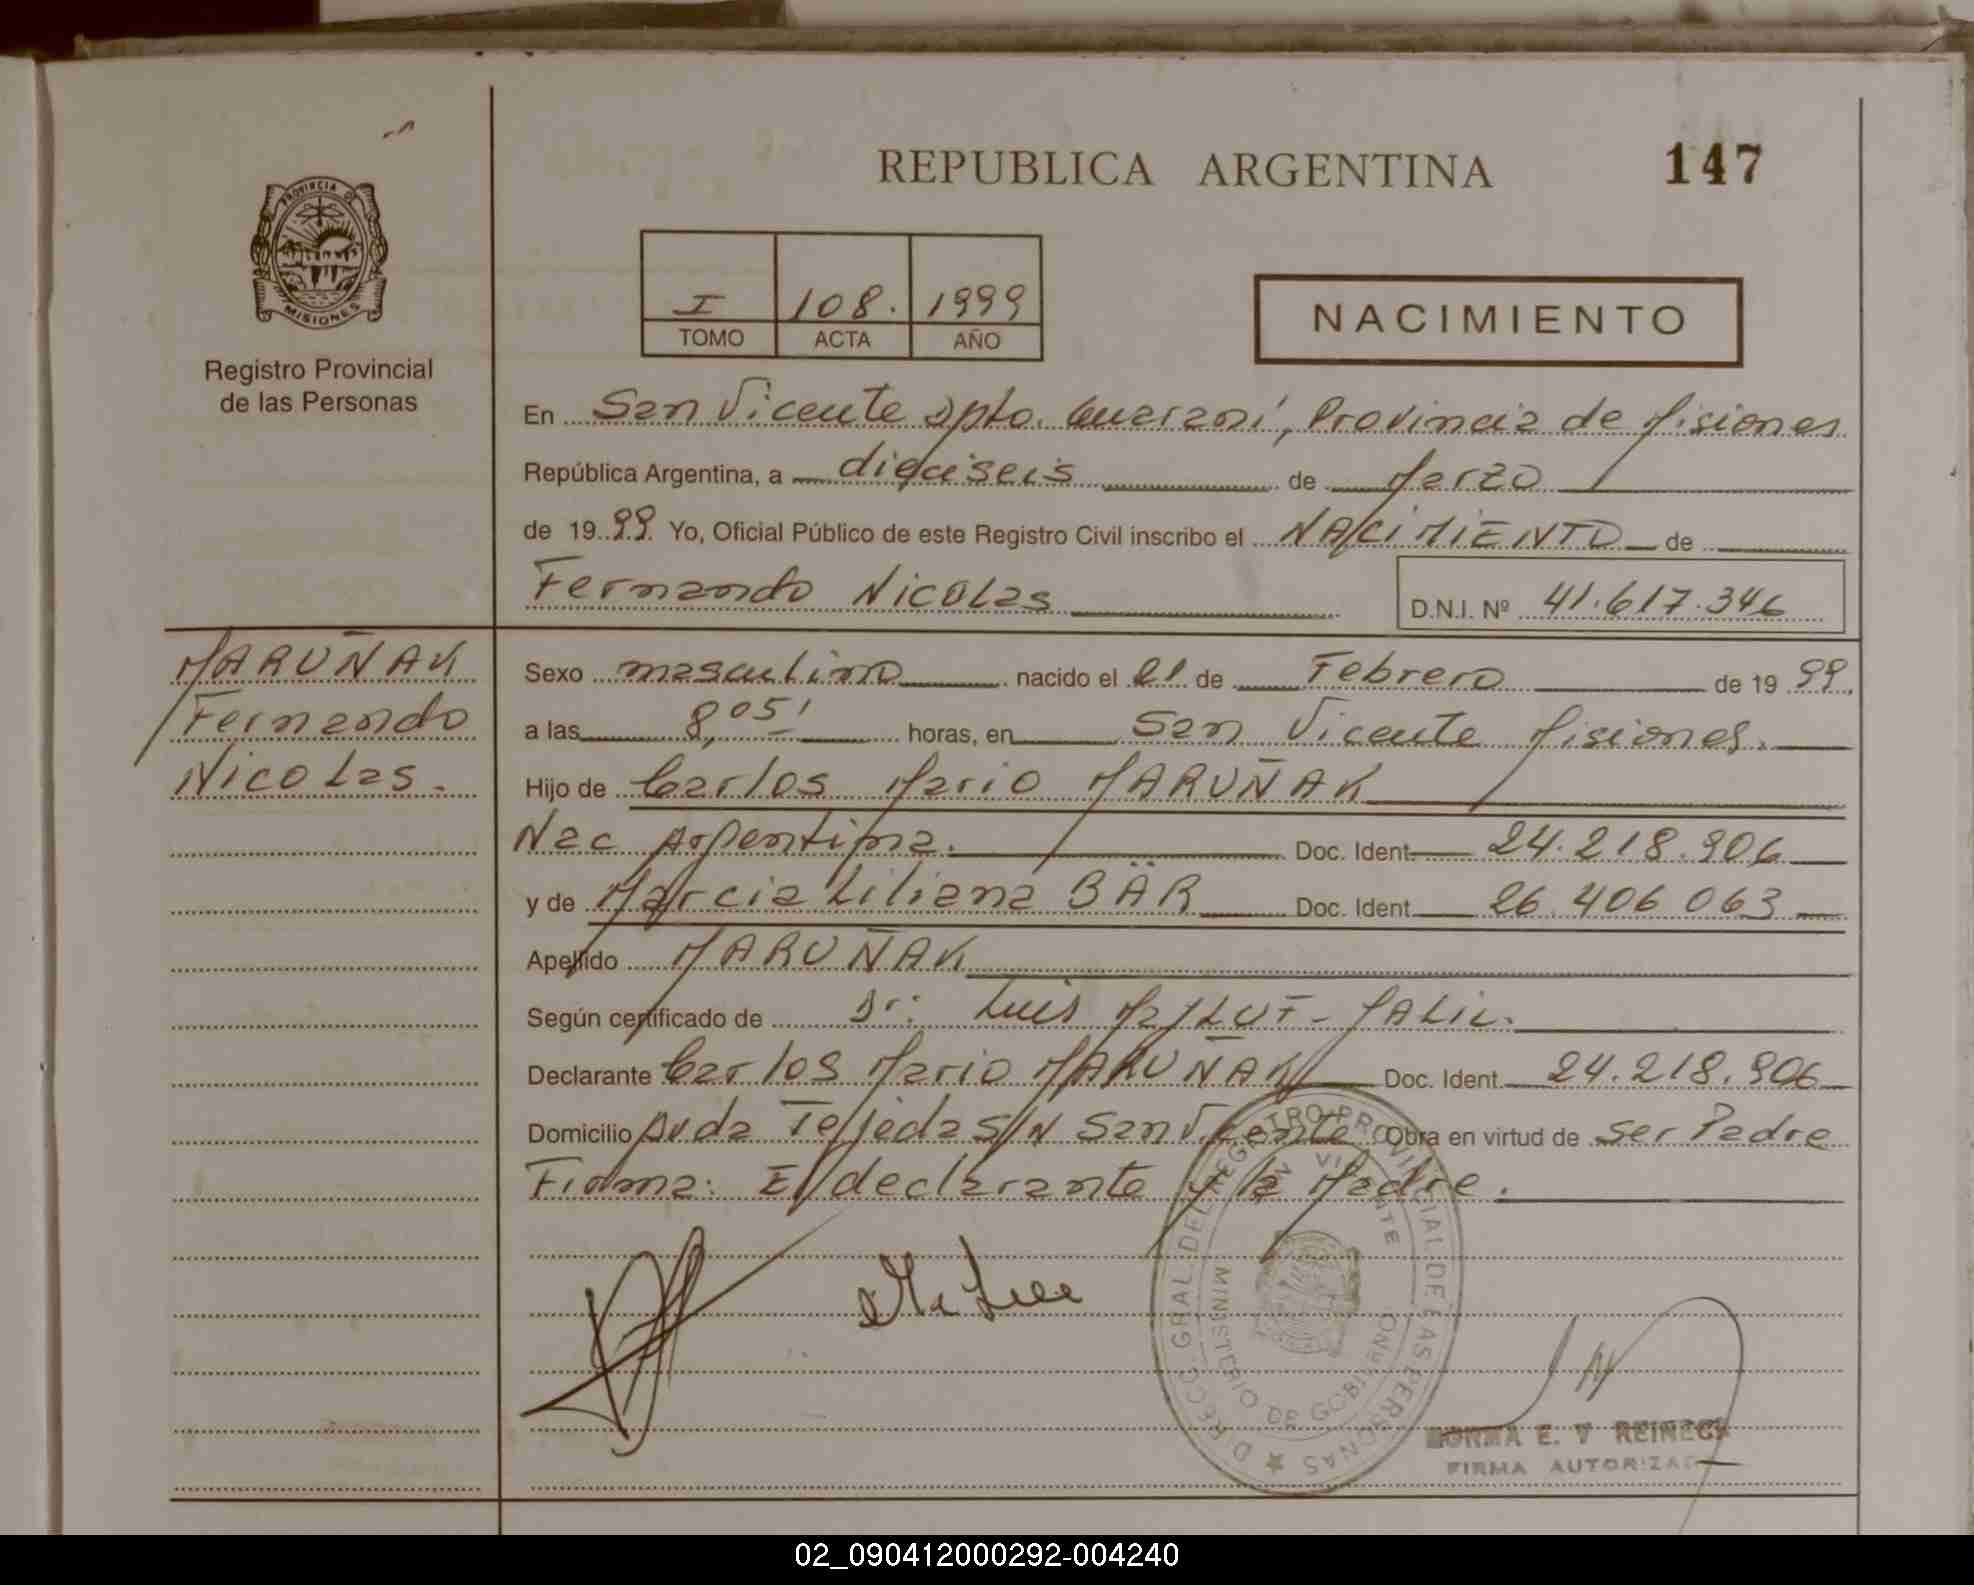 REPUBLICA ARGENTINA
147
PROVINCIA DE
MISIONES
Registro Provincial
de las Personas
I 108. 1999
TOMO ACTA AÑO
NACIMIENTO
En San Vicente Dpto. Guaraní, Provincia de Misiones
República Argentina, a dieciseis de Marzo
de 1999. Yo, Oficial Público de este Registro Civil inscribo el NACIMIENTO de
Fernando Nicolas D.N.I. Nº 41.617.346
MARUÑAK
Fernando
Nicolas.
Sexo masculino nacido el 21 de Febrero de 1999.
a las 8,05' horas, en San Vicente Misiones.
Hijo de Carlos Mario MARUÑAK
Nac Argentina. Doc. Ident. 24.218.906
y de Marcia Liliana BÄR Doc. Ident. 26.406.063
Apellido MARUÑAK
Según certificado de Dr: Luis
Declarante Carlos Mario MARUÑAK Doc. Ident. 24.218.906
Domicilio Avda Tejeda S/N San Vicente Obra en virtud de ser Padre
Firma: El declarante y la Madre.
DIRECC. GRAL. DEL REGISTRO PROVINCIAL DE LAS PERSONAS
MINISTERIO DE GOBIERNO
SAN VICENTE
NORMA E. V REINECK
FIRMA AUTORIZAD
02_090412000292-004240